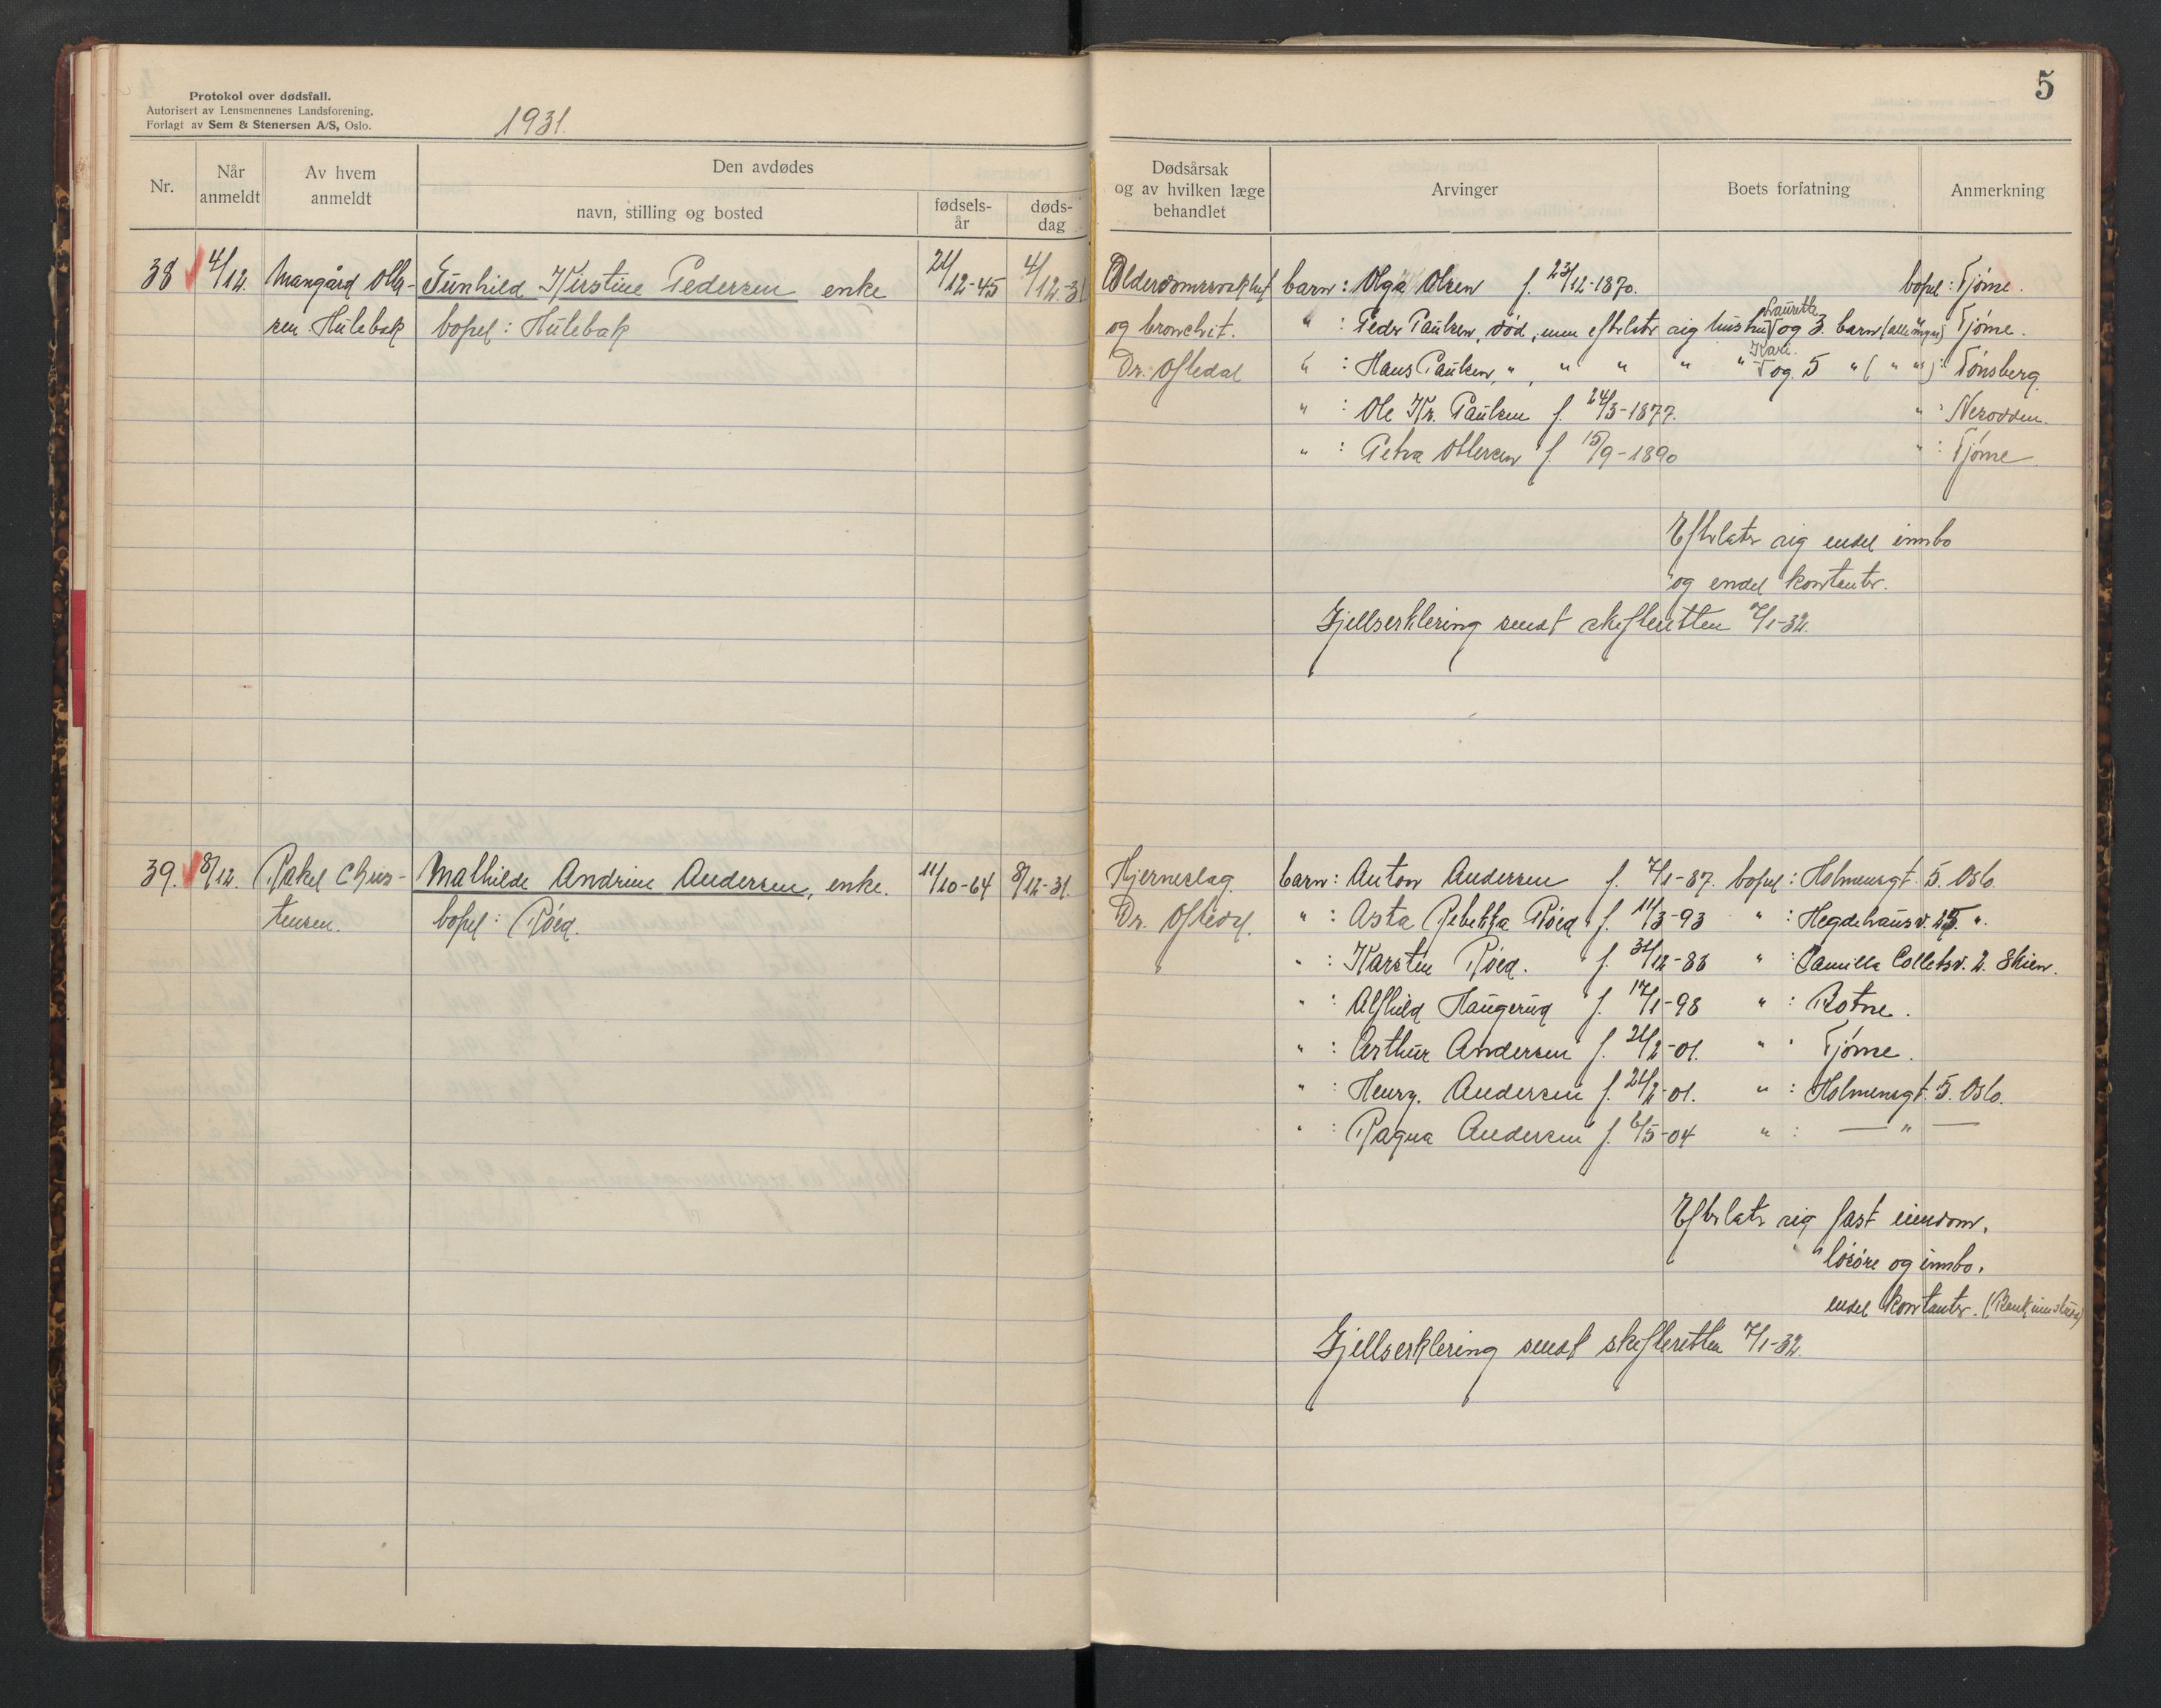 Protokol over dødsfall.
Autorisert av Lensmennenes Landsforening.
Forlagt av Sem & Stenersen A/S, Oslo.
1931.
5
Nr.
Når anmeldt
Av hvem anmeldt
Den avdødes
navn, stilling og bosted
fødsels-år
døds-dag
Dødsårsak og av hvilken læge behandlet
Arvinger
Boets forfatning
Anmerkning
38 4/12. Mangård Oller- Gunhild Kirstine Pedersen enke 21/12-45 4/12-31
sen Hulebak bopel: Hulebak
Alderdomssvakhet barn: Olga Olsen f. 23/12-1870. bopel: Tjøme.
og bronchit. " : Peder Paulsen, død, men efterlater sig hustru Laurette og 3 barn (alle myn) Tjøme.
Dr. Oftedal " : Hans Paulsen, " , " " " " Kari. og 5 " ( " " ): Tønsberg.
" : Ole Kr. Paulsen f. 24/3-1877. " : Nesodden.
" : Petra Ollersen f. 15/9-1890 " : Tjøme.
Efterlater sig endel innbo
og endel kontanter.
Gjellserklering sendt skifteretten 7/1-32.
39. 8/12. Rakel Chris- Mathilde Andrine Andersen, enke. 11/10-64 8/12-31.
tensen. bopel: Røed.
Hjerneslag barn: Anton Andersen f. 7/1-87. bopel: Holmensgt. 5. Oslo.
Dr. Oftedal. " : Asta Rebekka Røed f. 11/3-93 " : Hegdehausv. 25 ".
" : Karsten Røed. f. 31/12-88 " : Camilla Colletsv. 2. Skien.
" : Alfhild Haugerud f. 17/1-98 " : Botne.
" : Arthur Andersen f. 21/2-01. " " Tjøme.
" : Henry. Andersen f. 21/2-01. " : Holmensgt. 5. Oslo.
" : Ragna Andersen f. 6/5-04 " : — " —
Efterlater sig fast eiendom,
løsøre og innbo,
endel kontanter. (Bankinnskudd)
Gjellserklering sendt skifteretten 7/1-32.